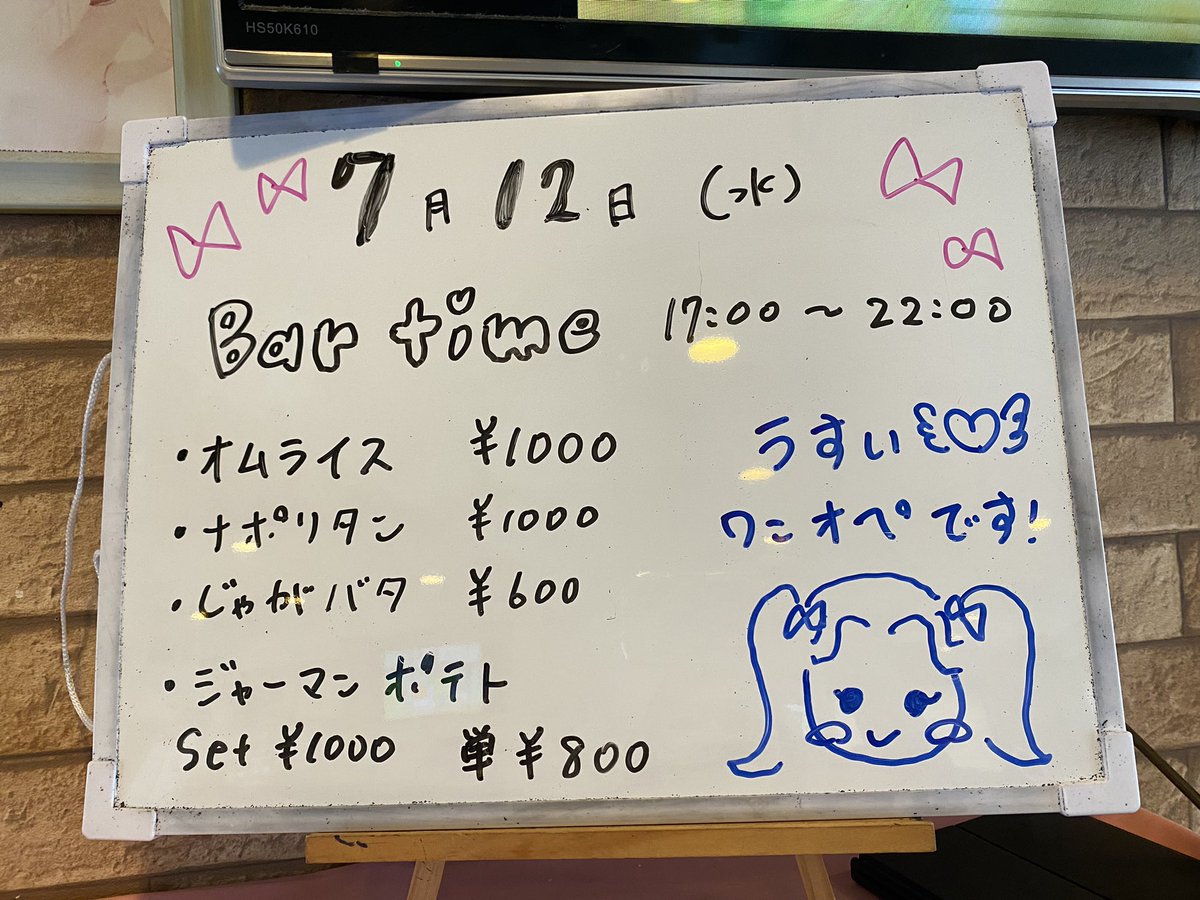 HS50K610
7月12日 (水)
Bar time 17:00〜22:00
・オムライス ¥1000
・ナポリタン ¥1000
・じゃがバタ ¥600
・ジャーマンポテト
Set ¥1000 単¥800
うすい
ワンオペです!